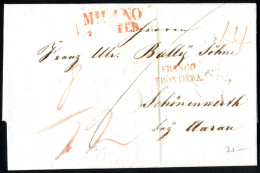 MILANO
FEB.
Herren
Franz Ulr. Bally Söhne
FRANCO
FRONTIERA
Schönenwerth
bey Aarau
30.-